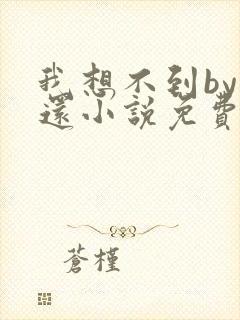 我想不到by
還小說免費
蒼槿